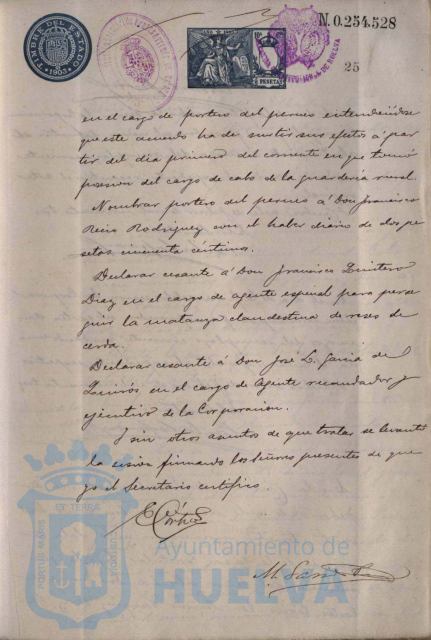 TIMBRE DEL ESTADO
1903
N. 0.254.528
PESETAS
DE HUELVA
25
en el cargo de portero del perneo entendiéndose
que este acuerdo ha de surtir sus efectos á par
tir del dia primero del corriente en que tomó
posesion del cargo de cabo de la guarderia rural.
Nombrar portero del perneo á Don Francisco
Recio Rodriguez con el haber diario de dos pe
setas cincuenta céntimos.
Declarar cesante á Don Francisco Quintero
Diaz en el cargo de agente especial para perse
guir la matanza clandestina de reses de
cerda.
Declarar cesante á Don José L. Garcia de
en el cargo de Agente recaudador y
ejecutivo de la Corporacion.
Y sin otros asuntos de que tratar se levantó
la sesion firmando los Señores presentes de que
yo el Secretario certifico.
PORTUS MARIS ET TERRÆ CUSTODIA
Ayuntamiento de
HUELVA